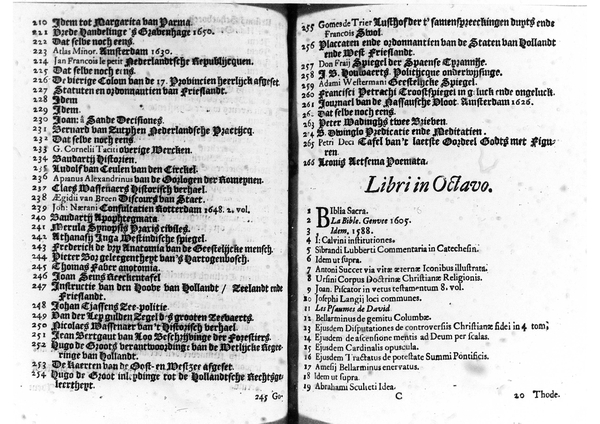 210 Idem tot Margarita van Parma.
221 Vrede Handelinge 's Gravenhage 1650.
222 Dat selve noch eens.
223 Atlas Minor. Amsterdam 1630.
214 Jan Francois le petit Nederlandtsche Republijcquen.
225 Dat selve noch eens.
226 De vierige Colom van de 17. Provincien heerlijck afgeset.
227 Statuten en ordonnantien van Frieslandt.
228 Idem
229 Idem.
230 Joan: à Sande Decisiones.
231 Bernard van Zutphen Nederlandsche Practijcq.
232 Dat selve noch eens.
233 G. Cornelii Taciti overige Wercken.
234 Baudartij Historien.
235 Ludolf van Ceulen van den Circkel.
236 Apianus Alexandrinus van de Oorlogen der Romeynen.
237 Claes Wassenaers Historisch verhael.
238 Ægidii van Breen Discours van Staet.
239 Joh: Nærani Consultatien Rotterdam 1648. 2. vol.
240 Baudartij Apophtegmata.
241 Merula Synopsis Praxis civiles.
242 Athanasij Inga Westindische spiegel.
243 Frederick de vry Anatomia van de Geestelijcke mensch.
244 Pieter Bor gelegentheyt van 's Hartogenbosch.
245 Thomas Faber anotomia.
246 Joan Sems Reeckentafel
247 Instructie van den Hoove van Hollandt / Zeelandt ende
Frieslandt.
248 Johan Claessens Zee-politie
249 Van der Ley gulden Zegel d's grooten Zeevaerts.
250 Nicolaes Wassenaer van 't Historisch verhael.
251 Jean Bertgaut van Loo Beschrijvinge der Forestiers.
252 Hugo de Groots verantwoording: van de Wetlijcke Regee-
ringe van Hollandt.
253 De Kaerten van de Oost- en Westzee afgeset.
254 Hugo de Groot inleydinge tot de Hollandtsche Rechtsge-
leertheyt.
245 Go-
255 Gomes de Trier Lusthof der t'samenspreeckingen duyts ende
Francois Swol.
256 Placcaten ende ordonnantien van de Staten van Hollandt
ende West Frieslandt.
257 Don Fraij Spiegel der Spaense Tyrannije.
258 J. B. Houwaerts Politijcque onderwijsinge.
259 Adami Westermani Geestelijcke Spiegel.
260 Francisci Petrachi Croostspiegel in geluck ende ongeluck.
261 Journael van de Nassausche Vloot. Amsterdam 1626.
262 Dat selve noch eens.
263 Peter Wadinghs twee Brieven.
264 B. Dwinglo Predicatie ende Meditatien.
265 Petri Deci Tafel van't laetste Oordeel Godts met Figu-
ren.
266 Leonis Aetsema Poemata.
Libri in Octavo.
1 BIblia Sacra.
2 La Bible. Geneve 1605.
3 Idem, 1588.
4 I: Calvini institutiones.
5 Sibrandi Lubberti Commentaria in Catechesin.
6 Idem ut supra.
7 Antoni Succer via vitæ æternæ Iconibus illustrata.
8 Ursini Corpus Doctrinæ Christianæ Religionis.
9 Joan. Piscator in vetus testamentum 8. vol.
10 Josephi Langij loci communes.
11 Les Pseaumes de David
12 Bellarminus de gemitu Columbæ.
13 Ejusdem Disputationes de controversiis Christianæ fidei in 4 tom;
14 Ejusdem de ascensione mentis ad Deum per scalas.
15 Ejusdem Cardinalis opuscula.
16 Ejusdem Tractatus de potestate Summi Pontificis.
17 Amesij Bellarminus enervatus.
18 Idem ut supra.
19 Abrahami Sculteti Idea.
C
20 Thode.